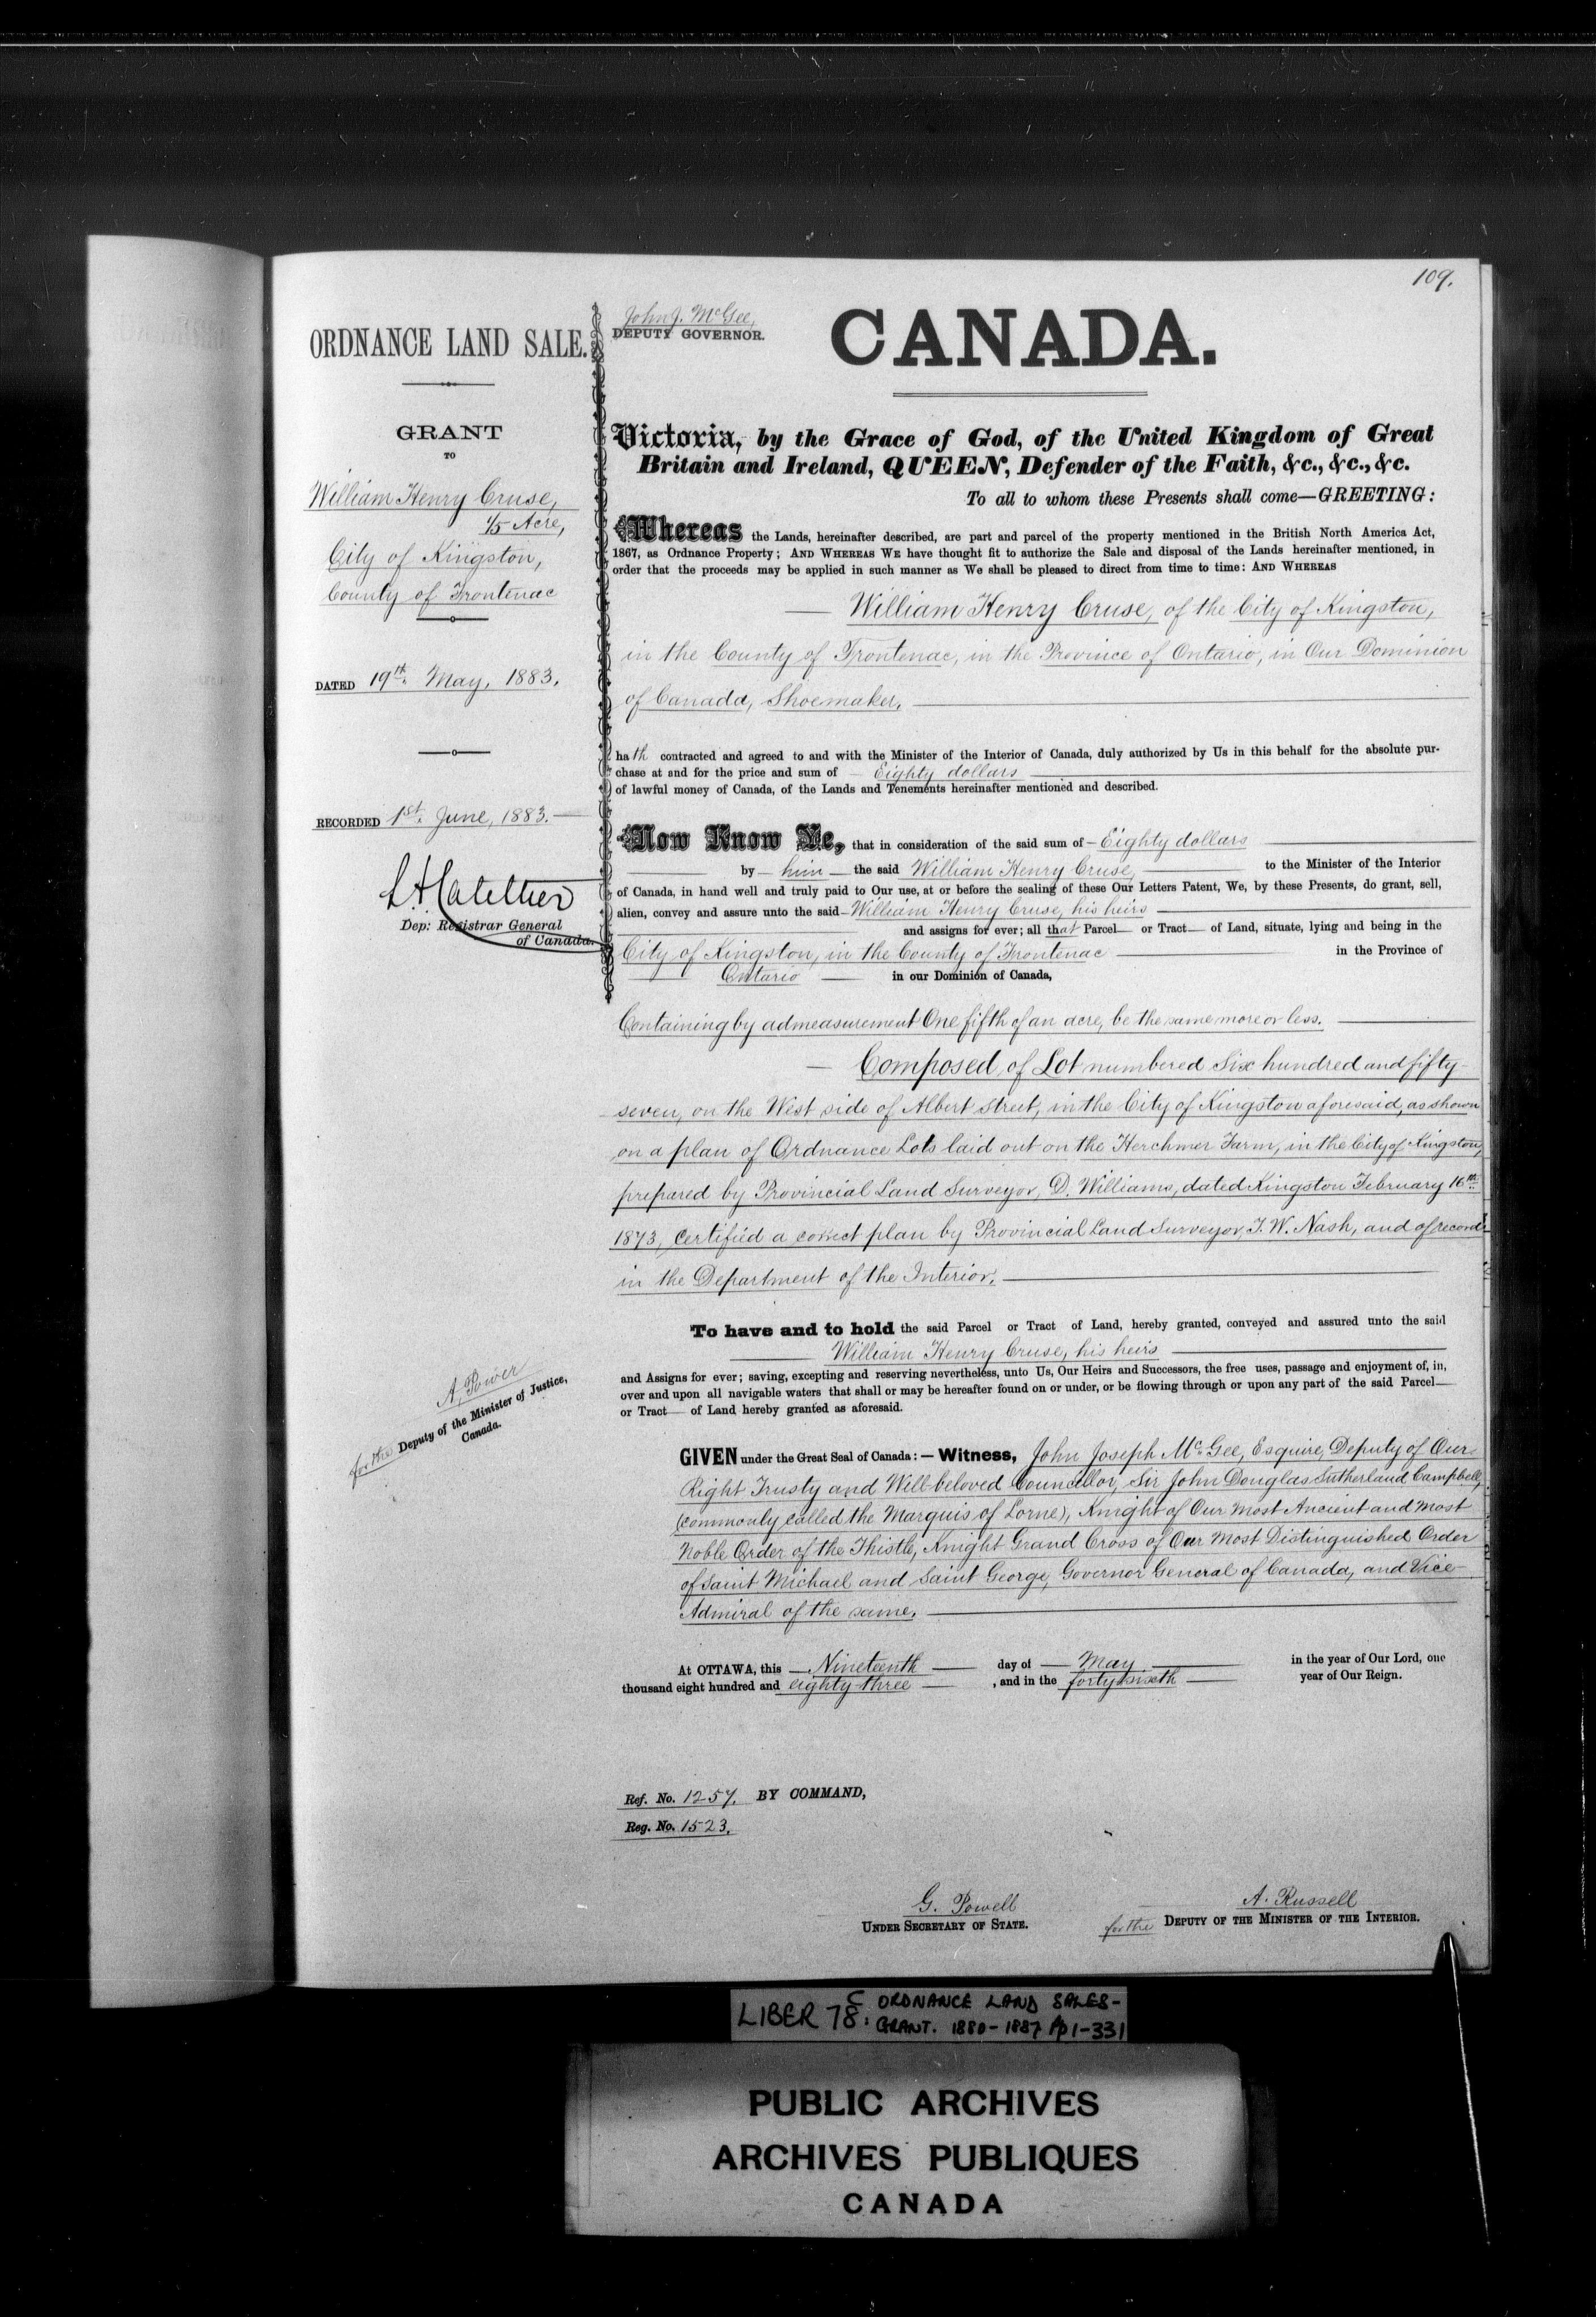 109.
ORDNANCE LAND SALE.
GRANT
TO
William Henry Cruse,
1/5 Acre,
City of Kingston,
County of Frontenac
DATED 19th May, 1883.
RECORDED 1st June, 1883.
Dep: Registrar General
of Canada.
A. Power
for the Deputy of the Minister of Justice,
Canada.
John J. McGee,
DEPUTY GOVERNOR.
CANADA.
Victoria, by the Grace of God, of the United Kingdom of Great
Britain and Ireland, QUEEN, Defender of the Faith, &c., &c., &c.
To all to whom these Presents shall come—GREETING:
Whereas the Lands, hereinafter described, are part and parcel of the property mentioned in the British North America Act,
1867, as Ordnance Property; AND WHEREAS WE have thought fit to authorize the Sale and disposal of the Lands hereinafter mentioned, in
order that the proceeds may be applied in such manner as We shall be pleased to direct from time to time: AND WHEREAS
— William Henry Cruse, of the City of Kingston,
in the County of Frontenac, in the Province of Ontario, in Our Dominion
of Canada, Shoemaker, —
hath contracted and agreed to and with the Minister of the Interior of Canada, duly authorized by Us in this behalf for the absolute pur-
chase at and for the price and sum of — Eighty dollars —
of lawful money of Canada, of the Lands and Tenements hereinafter mentioned and described.
Now Know Ye, that in consideration of the said sum of — Eighty dollars —
by — him — the said William Henry Cruse, — to the Minister of the Interior
of Canada, in hand well and truly paid to Our use, at or before the sealing of these Our Letters Patent, We, by these Presents, do grant, sell,
alien, convey and assure unto the said — William Henry Cruse, his heirs —
and assigns for ever; all that Parcel— or Tract— of Land, situate, lying and being in the
City of Kingston, in the County of Frontenac — in the Province of
— Ontario — in our Dominion of Canada,
Containing by admeasurement One fifth of an acre, be the same more or less. —
— Composed of Lot numbered Six hundred and fifty-
seven, on the West side of Albert Street, in the City of Kingston aforesaid, as shown
on a plan of Ordnance Lots laid out on the Herchmer Farm, in the City of Kingston,
prepared by Provincial Land Surveyor, D. Williams, dated Kingston February 16th
1873, certified a correct plan by Provincial Land Surveyor, T. W. Nash, and of record
in the Department of the Interior. —
To have and to hold the said Parcel or Tract of Land, hereby granted, conveyed and assured unto the said
— William Henry Cruse, his heirs —
and Assigns for ever; saving, excepting and reserving nevertheless, unto Us, Our Heirs and Successors, the free uses, passage and enjoyment of, in,
over and upon all navigable waters that shall or may be hereafter found on or under, or be flowing through or upon any part of the said Parcel—
or Tract— of Land hereby granted as aforesaid.
GIVEN under the Great Seal of Canada: — Witness, John Joseph McGee, Esquire, Deputy of Our
Right Trusty and Well-beloved Councillor, Sir John Douglas Sutherland Campbell,
(commonly called the Marquis of Lorne), Knight of Our Most Ancient and Most
Noble Order of the Thistle, Knight Grand Cross of Our Most Distinguished Order
of Saint Michael and Saint George, Governor General of Canada, and Vice-
Admiral of the same. —
At OTTAWA, this — Nineteenth — day of — May — in the year of Our Lord, one
thousand eight hundred and eighty-three — , and in the forty-sixth — year of Our Reign.
Ref. No. 1257. BY COMMAND,
Reg. No. 1523.
G. Powell
UNDER SECRETARY OF STATE.
A. Russell
for the DEPUTY OF THE MINISTER OF THE INTERIOR.
LIBER 78C: ORDNANCE LAND SALES-
GRANT. 1880-1887 pp 1-331
PUBLIC ARCHIVES
ARCHIVES PUBLIQUES
CANADA